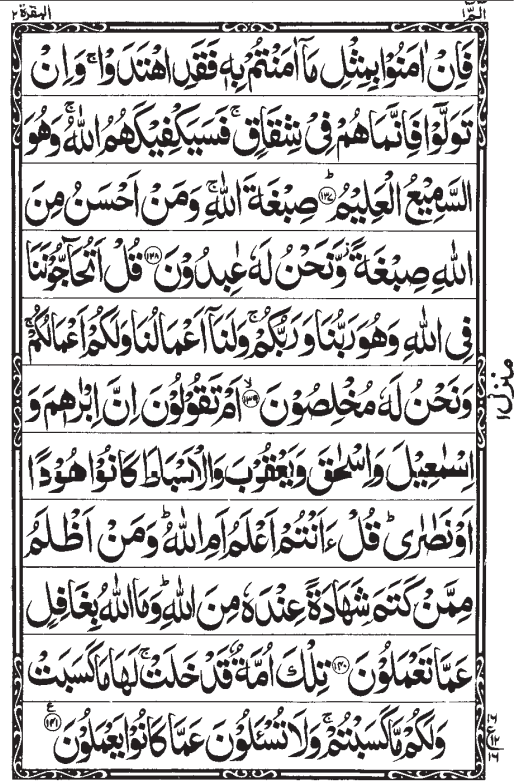 الٓمّٓا
البقرة ٢
فَاِنْ اٰمَنُوْا بِمِثْلِ مَاۤ اٰمَنْتُمْ بِهٖ فَقَدِ اهْتَدَوْا ۚ وَاِنْ
تَوَلَّوْا فَاِنَّمَا هُمْ فِیْ شِقَاقٍ ۚ فَسَیَكْفِیْكَهُمُ اللّٰهُ ۚ وَهُوَ
السَّمِیْعُ الْعَلِیْمُ ؕ﴿۱۳۷﴾ صِبْغَةَ اللّٰهِ ۚ وَمَنْ اَحْسَنُ مِنَ
اللّٰهِ صِبْغَةً ؗ وَّنَحْنُ لَهٗ عٰبِدُوْنَ ﴿۱۳۸﴾ قُلْ اَتُحَآجُّوْنَنَا
فِی اللّٰهِ وَهُوَ رَبُّنَا وَرَبُّكُمْ ۚ وَلَنَاۤ اَعْمَالُنَا وَلَكُمْ اَعْمَالُكُمْ ۚ
وَنَحْنُ لَهٗ مُخْلِصُوْنَ ۙ﴿۱۳۹﴾ اَمْ تَقُوْلُوْنَ اِنَّ اِبْرٰهٖمَ وَ
اِسْمٰعِیْلَ وَاِسْحٰقَ وَیَعْقُوْبَ وَالْاَسْبَاطَ كَانُوْا هُوْدًا
اَوْ نَصٰرٰی ؕ قُلْ ءَاَنْتُمْ اَعْلَمُ اَمِ اللّٰهُ ؕ وَمَنْ اَظْلَمُ
مِمَّنْ كَتَمَ شَهَادَةً عِنْدَهٗ مِنَ اللّٰهِ ؕ وَمَا اللّٰهُ بِغَافِلٍ
عَمَّا تَعْمَلُوْنَ ﴿۱۴۰﴾ تِلْكَ اُمَّةٌ قَدْ خَلَتْ ۚ لَهَا مَا كَسَبَتْ
وَلَكُمْ مَّا كَسَبْتُمْ ۚ وَلَا تُسْـَٔلُوْنَ عَمَّا كَانُوْا یَعْمَلُوْنَ ﴿۱۴۱﴾ ع
منزل ۱
۱۶
ع ۱۲
۱۶